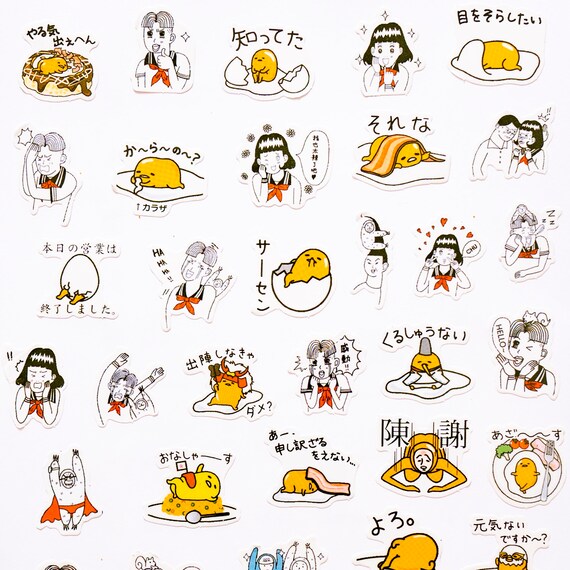 やる気
出ぇへん
知ってた
目をそらしたい
か〜ら〜の〜?
↑カラザ
それな
本日の営業は
終了しました。
HA
HA
サーセン
CHU
ZZ
HELLO
出陣しなきゃ
ダメ?
感動!!
くるしゅうない
おなしゃーす
あー、
申し訳ざる
をえない…
陳謝
あざーーす
よろ。
元気ない
ですか〜?